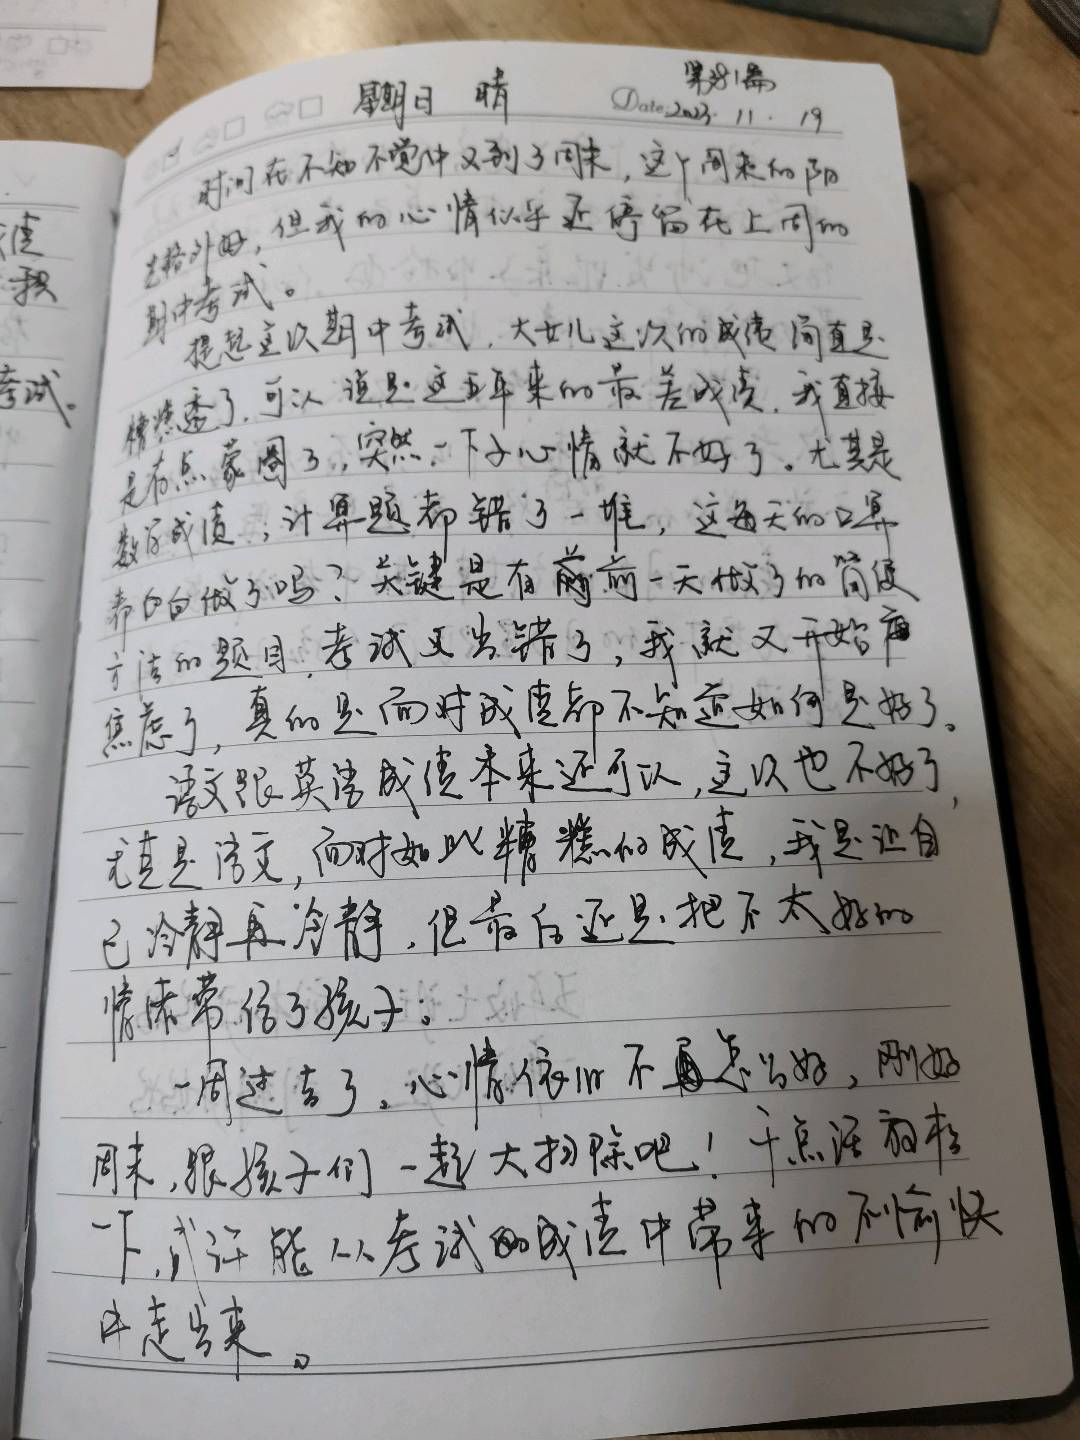 第91篇
星期日 晴 Date: 2023.11.19
时间在不知不觉中又到了周末，这个周末的阳
光格外好，但我的心情似乎还停留在上周的
期中考试。
提起这次期中考试，大女儿这次的成绩简直是
糟糕透了，可以说是这五年来的最差成绩，我直接
是有点蒙圈了，突然一下子心情就不好了。尤其是
数学成绩，计算题都错了一堆，这每天的口算
都白白做了吗？关键是有前一天做了的简便
方法的题目，考试又出错了，我就又开始
焦虑了，真的是面对成绩都不知道如何是好了。
语文跟英语成绩本来还可以，这次也不好了，
尤其是语文，面对如此糟糕的成绩，我是让自
己冷静再冷静，但最后还是把不太好的
情绪带给了孩子。
一周过去了，心情依旧不怎么好，刚好
周末，跟孩子们一起大扫除吧！干点活放松
一下，或许能从考试的成绩中带来的不愉快
中走出来。
绩
积
考试。